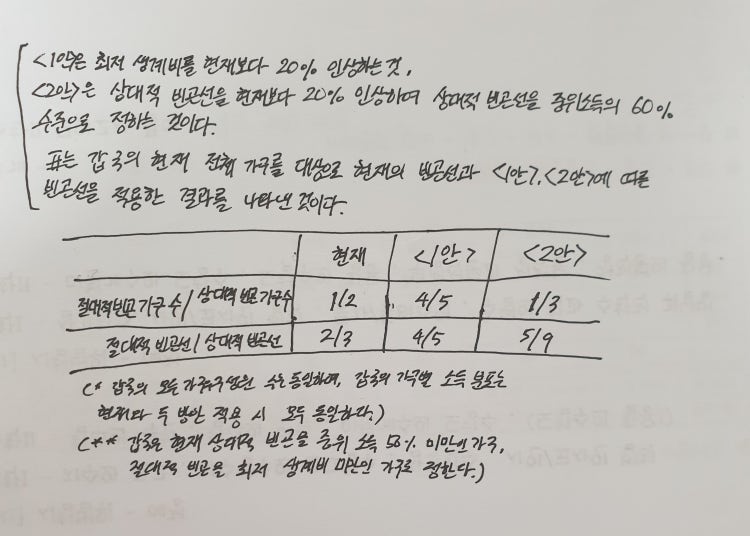 <1안>은 최저 생계비를 현재보다 20% 인상하는 것,
<2안>은 상대적 빈곤선을 현재보다 20% 인상하여 상대적 빈곤선을 중위소득의 60%
수준으로 정하는 것이다.
표는 갑국의 현재 전체 가구를 대상으로 현재의 빈곤선과 <1안>, <2안>에 따른
빈곤선을 적용한 결과를 나타낸 것이다.
현재 <1안> <2안>
절대적 빈곤 가구 수 / 상대적 빈곤 가구수 1/2 4/5 1/3
절대적 빈곤선 / 상대적 빈곤선 2/3 4/5 5/9
(* 갑국의 모든 가구구성원 수는 동일하며, 갑국의 가구별 소득 분포는
현재와 두 방안 적용 시 모두 동일하다.)
(** 갑국은 현재 상대적 빈곤을 중위 소득 50% 미만인 가구,
절대적 빈곤을 최저 생계비 미만인 가구로 정한다.)